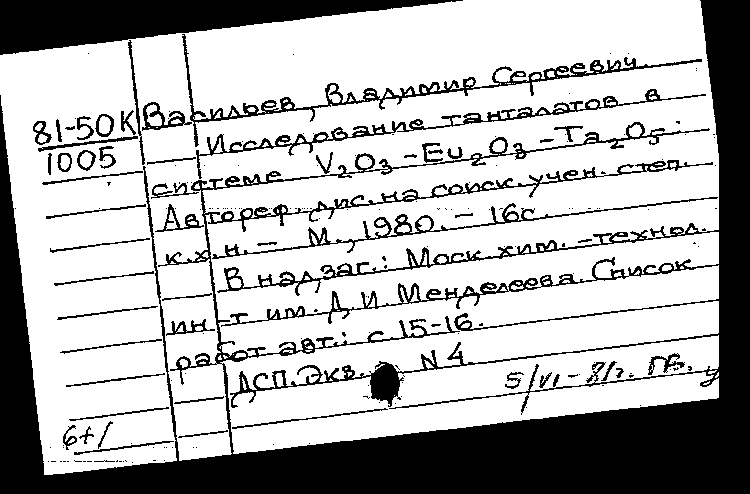 81-50К
1005
Васильев, Владимир Сергеевич.
Исследование танталатов в
системе V2O3-Eu2O3-Ta2O5:
Автореф. дис. на соиск. учен. степ.
к.х.н. - М., 1980. - 16с.
В надзаг.: Моск. хим.-технол.
ин-т им. Д.И. Менделеева. Список
работ авт.: с.15-16.
ДСП. Экз. N 4.
5/VI-81г. ГБ.
6+/